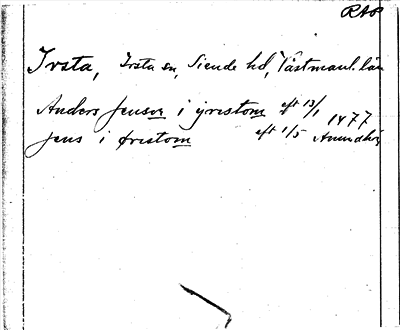 RAP
Irsta, Irsta sn, Siende hd, Västmanl. län
Anders Jenson i yrestom eft 13/1 1477
Jens i ørestom eft 1/5 Anundhög